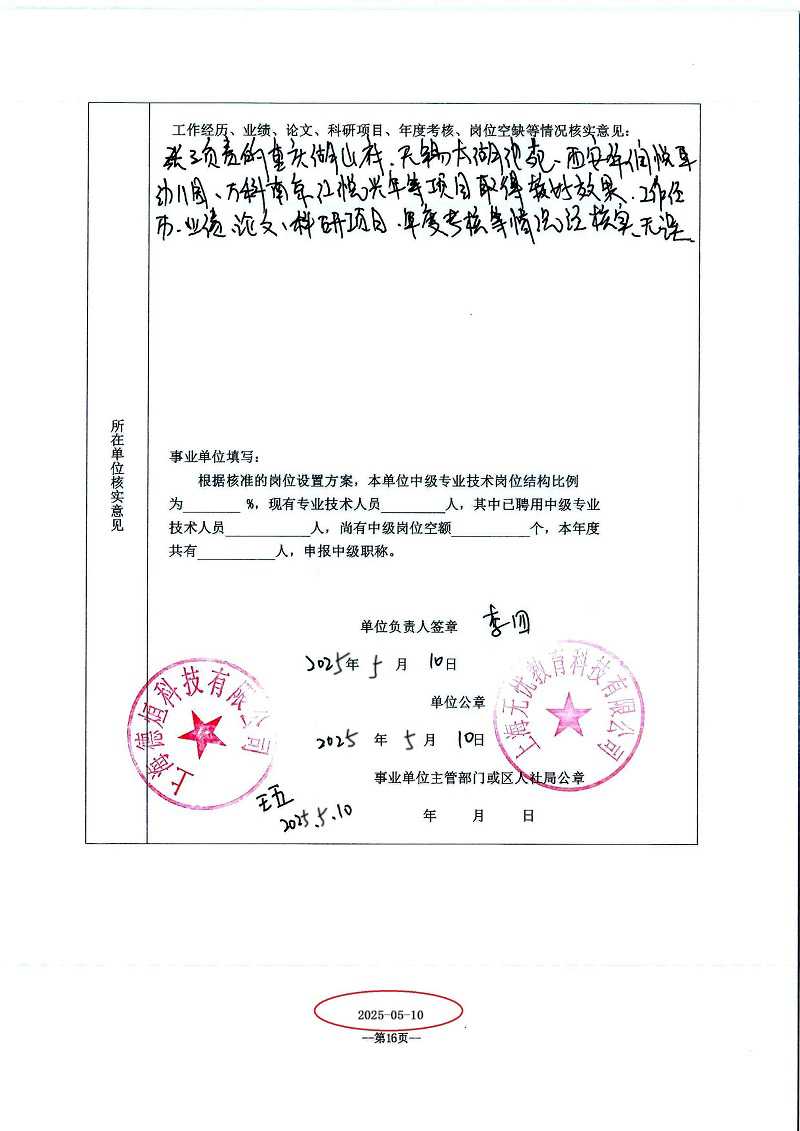 工作经历、业绩、论文、科研项目、年度考核、岗位空缺等情况核实意见：
张三负责的重庆湖山村、无锡太湖 苑、西安华润悦府
幼儿园、万科南京江悦兴年等项目取得较好效果、工作经
历、业绩、论文、科研项目、年度考核等情况经核实、无误
所在单位核实意见
事业单位填写：
根据核准的岗位设置方案，本单位中级专业技术岗位结构比例
为________ %，现有专业技术人员_________人，其中已聘用中级专业
技术人员____________人，尚有中级岗位空额___________个，本年度
共有___________人，申报中级职称。
单位负责人签章 李四
2025年 5 月 10日
单位公章
2025 年 5月 10日
事业单位主管部门或区人社局公章
年 月 日
上海德恒科技有限公司
上海无忧教育科技有限公司
王五
2025.5.10
2025-05-10
--第16页--